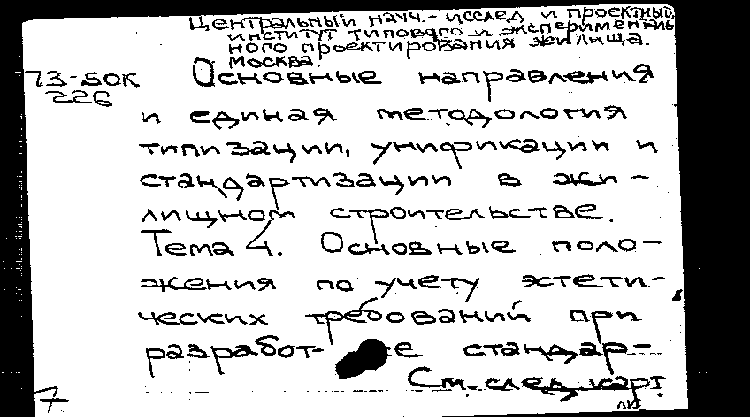 Центральный науч.-исслед и проектный
институт типового и эксперименталь
ного проектирования жилища.
Москва.
73-БОК
226
Основные направления
и единая методология
типизации, унификации и
стандартизации в жи-
лищном строительстве.
Тема 4. Основные поло-
жения по учету эстети-
ческих требований при
разработ- е стандар-
См. след. карт
7